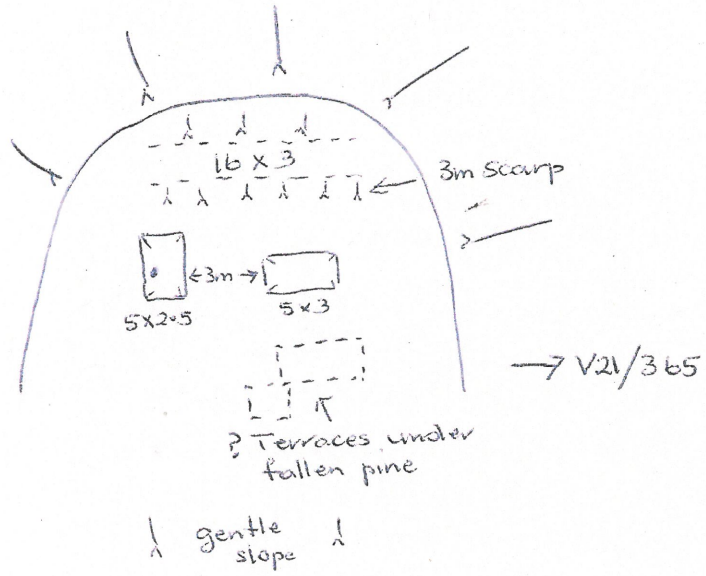 16 x 3
3m scarp
←3m→
5x2.5
5x3
→ V21/365
? Terraces under
fallen pine
gentle
slope